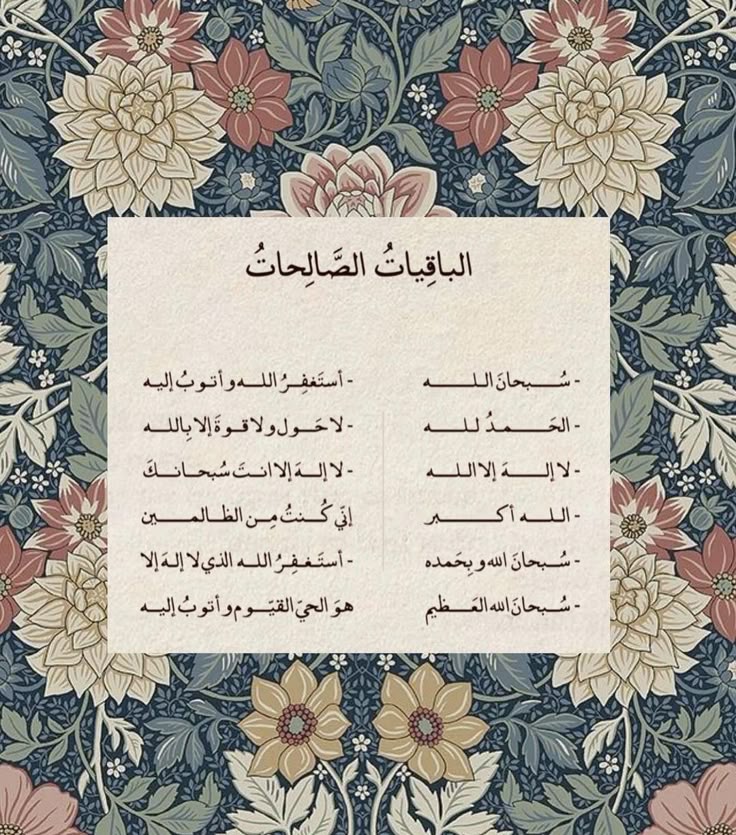 الباقِياتُ الصَّالِحاتُ
- سُبحانَ اللـه
- الحَمدُ للـه
- لا إلـهَ إلا اللـه
- اللـه أكبر
- سُبحانَ الله وبِحَمده
- سُبحانَ الله العَظيم
- أستَغفِرُ اللـه وأتوبُ إليه
- لا حَول ولا قوةَ إلا بِاللـه
- لا إلـهَ إلا انتَ سُبحانكَ
إنّي كُنتُ مِن الظالمين
- أستَغفِرُ اللـه الذي لا إلهَ إلا
هوَ الحيّ القيّوم وأتوبُ إليه